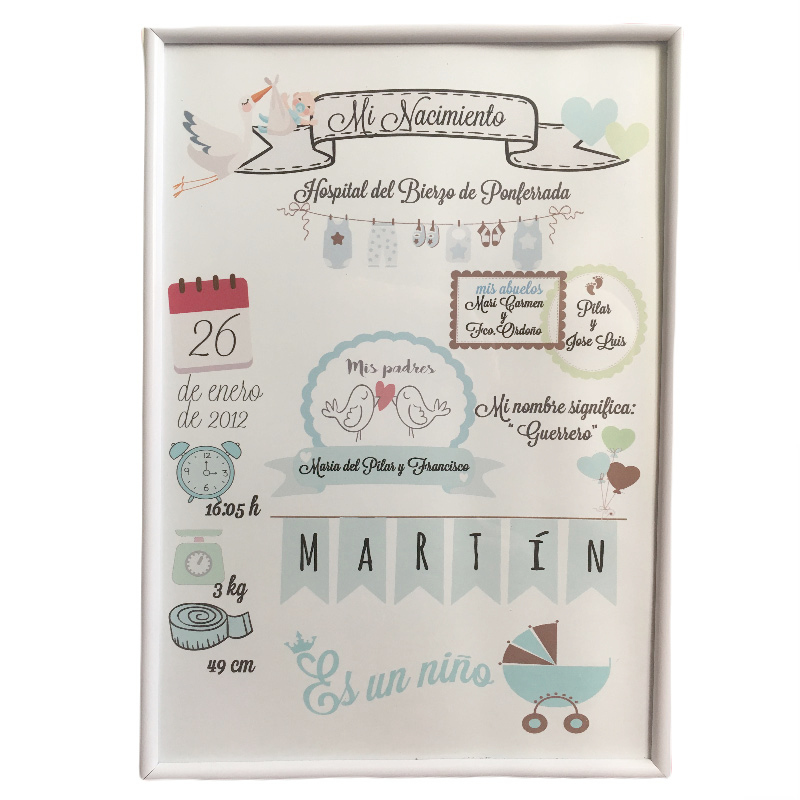 Mi Nacimiento
Hospital del Bierzo de Ponferrada
mis abuelos
Mari Carmen
y
Fco. Ordoño
Pilar
y
Jose Luis
26
de enero
de 2012
Mis padres
Maria del Pilar y Francisco
Mi nombre significa:
"Guerrero"
12
3
6
9
16:05 h
MARTÍN
3 kg
49 cm
Es un niño